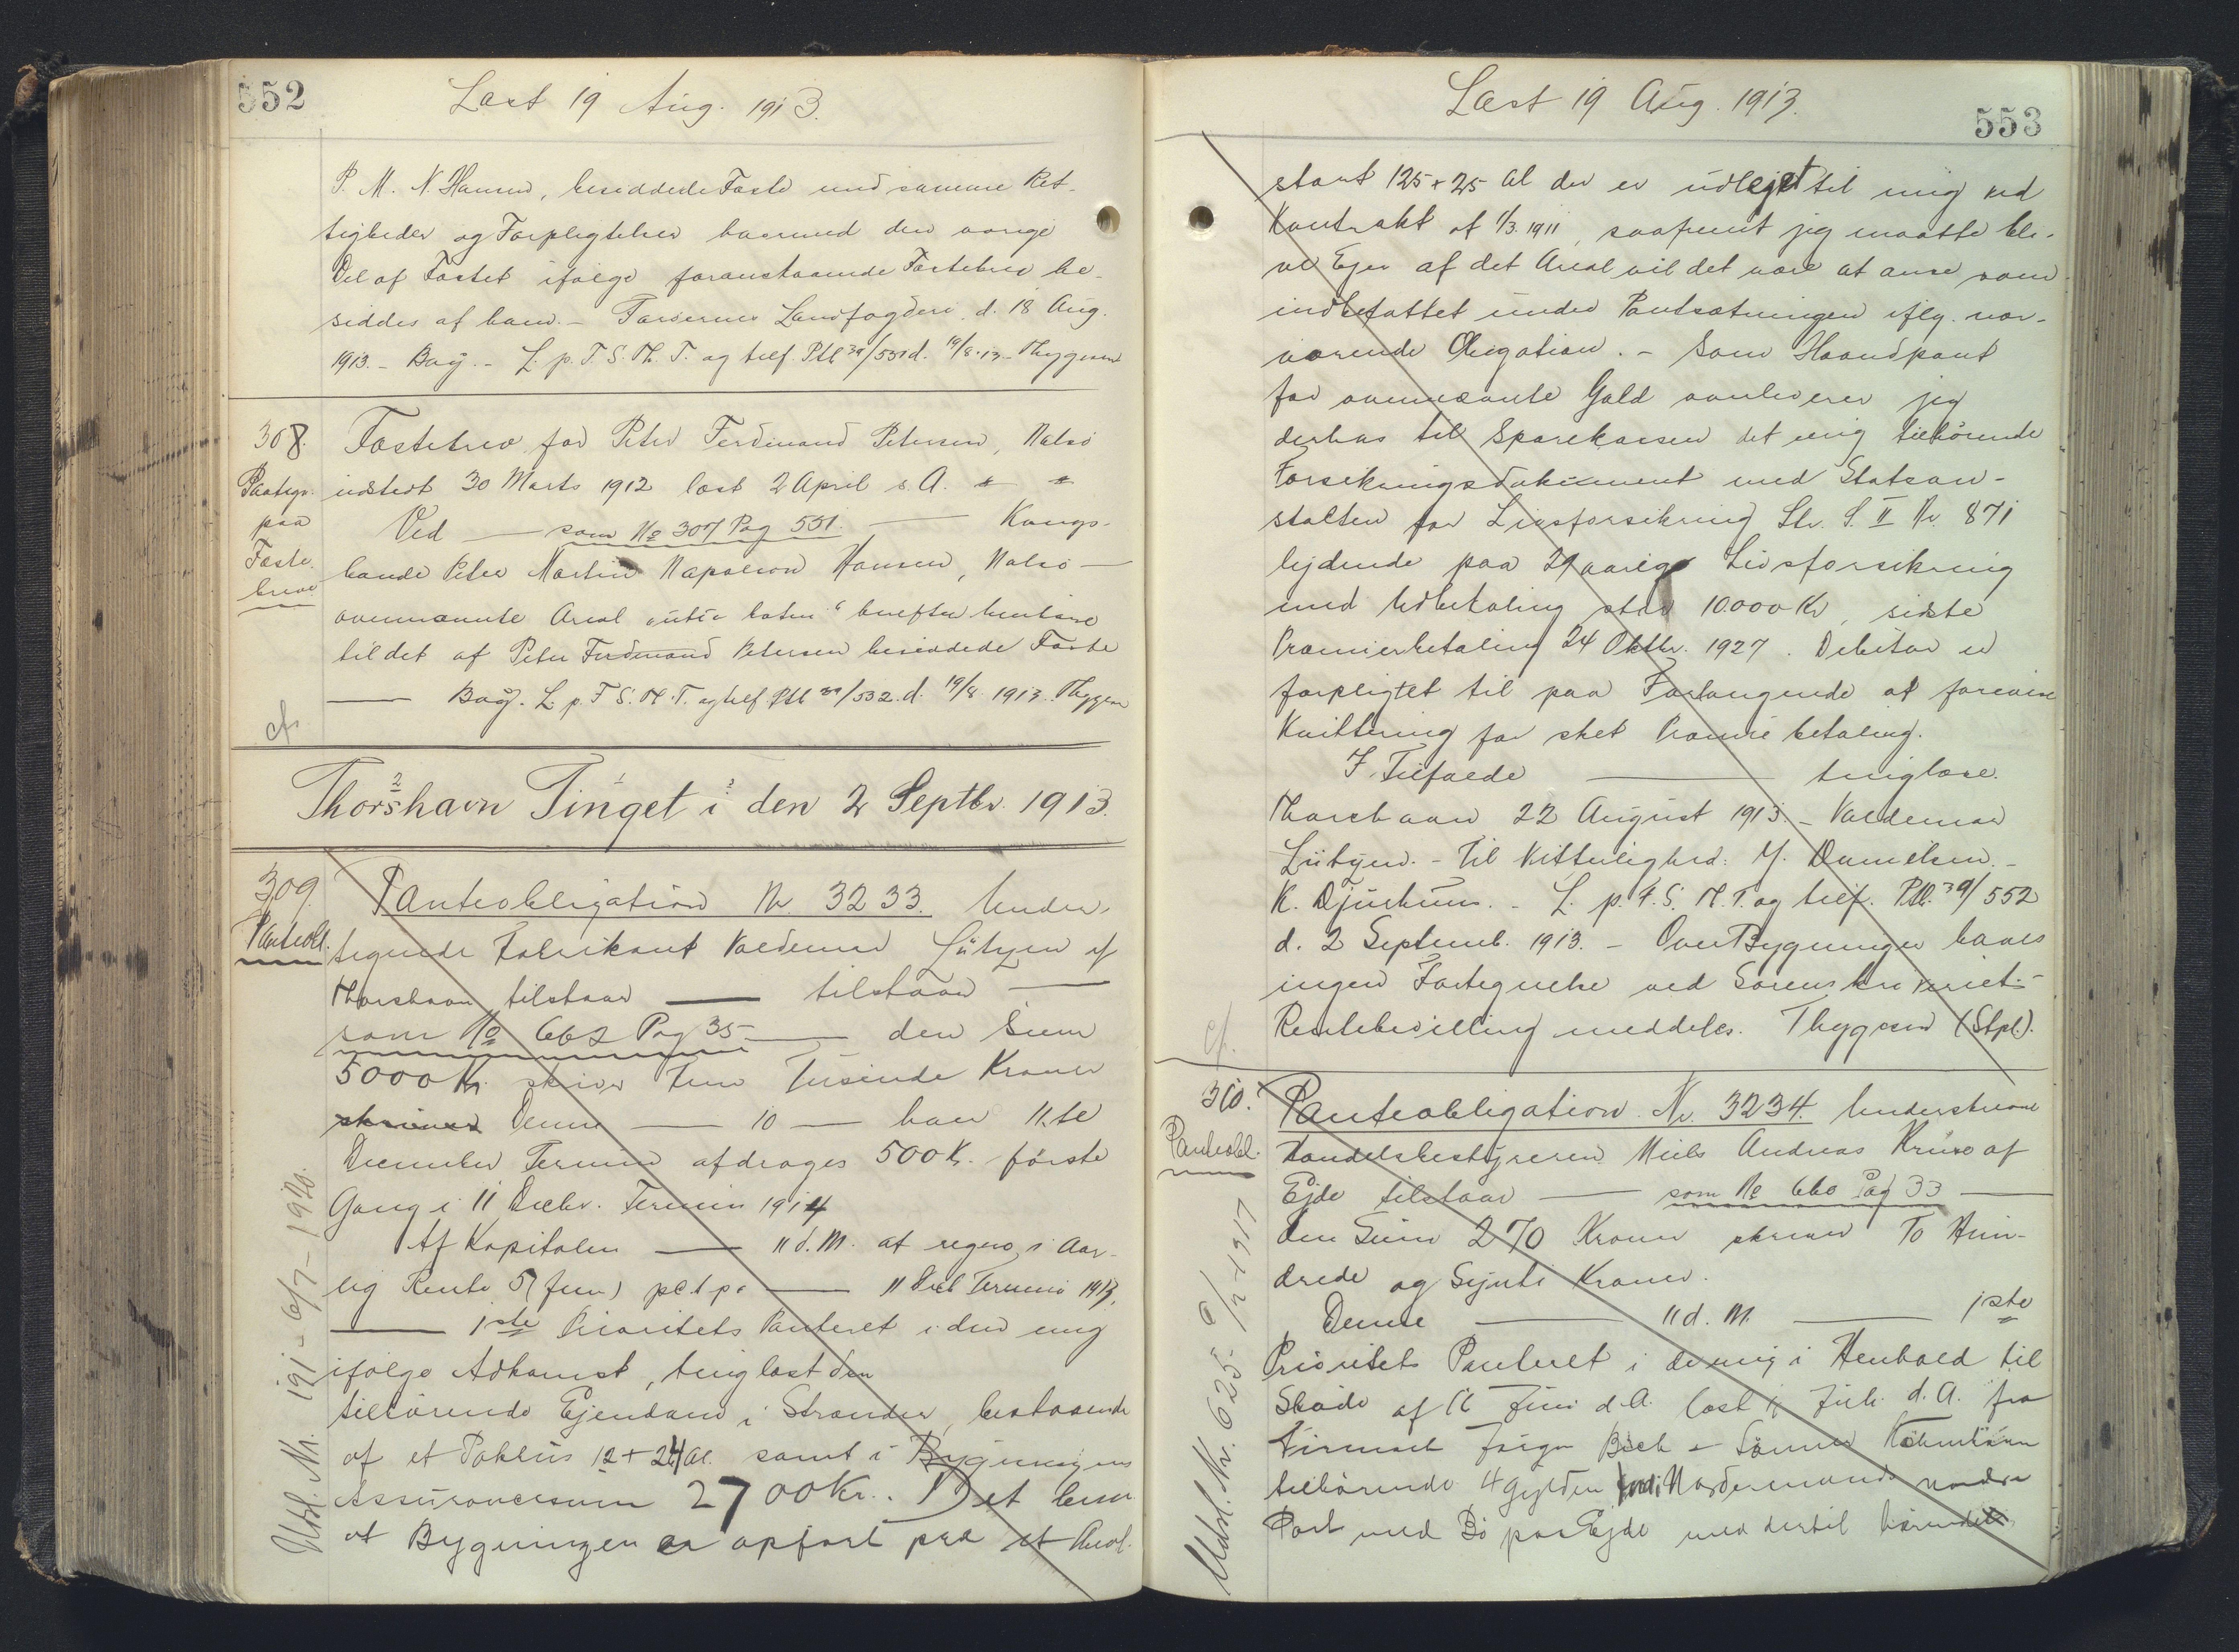 552
Læst 19 Aug. 1913.
P. M. N. Hansen, besiddede Fæste med samme Ret-
tigheder og Forpligtelser hvormed den øvrige
Del af Fæstet ifølge foranstaaende Fæstebrev be-
siddes af ham. - Færøernes Landfogderi d. 18 Aug.
1913. - Bay. - L. p. F. S. Th. T. og tilf. Ptb 39/531 d. 19/8 - 13 - Thygesen
308.
Paategn.
paa
Fæste-
breve
Fæstebrev for Peter Ferdinand Petersen, Nolsø
udstedt 30 Marts 1912 læst 2 April s. A.
Ved — som No 307 Pag 551. — Kongs-
bonde Peter Martin Napoleon Hansen, Nolsø —
ovennævnte Areal herefter henlagt
til det af Peter Ferdinand Petersen besiddede Fæste
— Bay. L. p. F. S. Th. T. og tilf. Ptb 39/552. d. 19/8 1913. Thygesen
cf.
Thorshavn Tinget i den 2 Septbr. 1913.
309.
Panteobl.
Panteobligation Nr. 3233. Under-
tegnede Fabrikant Valdemar Lützen af
Thorshavn tilstaar — tilstaar —
som No 662 Pag 35 — den Sum
5000 Kr. skriver Fem Tusinde Kroner
skriver Denne — 10 — hver 11te
December Termin afdrages 500 Kr. første
Gang i 11 Decbr. Termin 1914
Af Kapitalen — 11 d. M. at regne, i Aar-
lig Rente 5 (fem) pCt p. a — 11 Decb Termin 1913,
— 1ste Prioritets Panteret i den mig
ifølge Adkomst, tinglæst den
tilhørende Ejendom i Stranden, bestaaende
af et Pakhus 12 + 24 Al. samt i Bygningens
Assurancesum 2700 Kr. Det bem.
at Bygningen er opført paa et Areal
Udsl. Nr. 191 - 6/7 - 1920.
Læst 19 Aug. 1913.
553
stort 125 + 25 Al der er udlejet til mig ved
Kontrakt af 1/3 1911, saafremt jeg maatte bli-
ve Ejer af det Areal vil det være at anse som
indbefattet under Pantsætningen iflg. nær-
værende Obligation. - Som Haandpant
for ovennævnte Gæld overleverer jeg
derhos til Sparekassen det mig tilhørende
Forsikringsdokument med Statsan-
stalten for Livsforsikring S. II Nr. 871
lydende paa aarig Livsforsikring
med Udbetaling stor 10000 Kr, sidste
Præmiebetaling 24 Oktbr. 1927. Debitor er
forpligtet til paa Forlangende at forevise
Kvittering for sket Præmiebetaling.
I Tilfælde — tinglæse.
Thorshavn 22 August 1913. - Valdemar
Lützen. - Til Vitterlighed: M. Danielsen. -
K. Djurhuus. - L. p. F. S. Th. T. og tilf. Ptb. 39/552
d. 2 Septemb. 1913. - Over Bygningen haves
ingen Fortegnelse ved Sorenskriveriet. -
Rentebevilling meddeles. Thygesen (Stpl.).
cf.
310.
Panteobl.
Panteobligation Nr. 3234. Understrevne
Handelsbestyreren Niels Andreas Kruse af
Ejde tilstaar — som No 660 Pag 33 —
den Sum 270 Kroner skriver To Hun-
drede og Syvti Kroner.
Denne — 11 d. M. — 1ste
Prioritets Panteret i de mig i Henhold til
Skøde af 16 Juni d. A. læst Juli d. A. fra
Firmaet Bech & Sønner
tilhørende 4 Gylden Jord i Nordermands nordre
Part med Bø paa Ejde med dertil hørende
Udsl. Nr. 625 - 1917